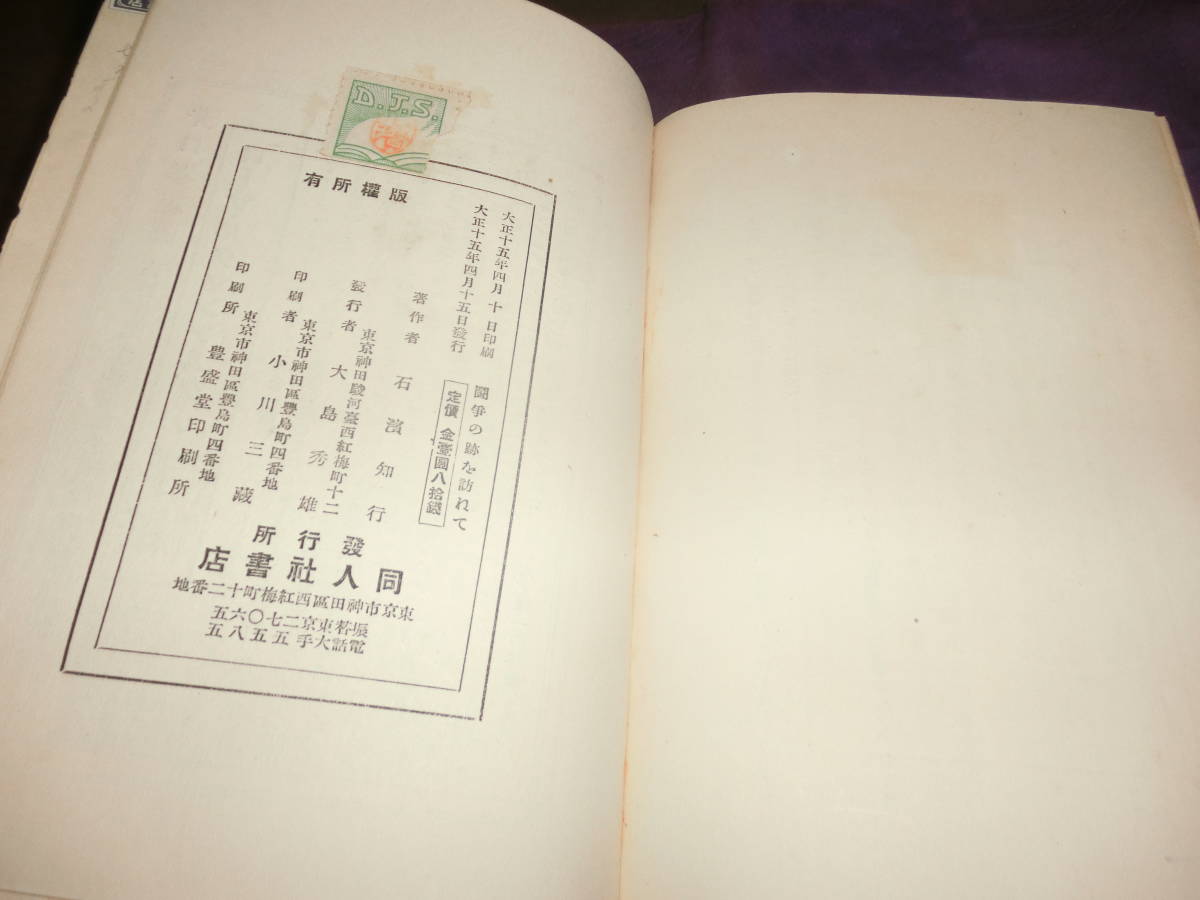 D.J.S.
版權所有
大正十五年四月十日印刷
大正十五年四月十五日發行
鬪爭の跡を訪れて
定價 金壹圓八拾錢
著作者 石濱知行
東京神田駿河臺西紅梅町十二
發行者 大島秀雄
東京市神田區豐島町四番地
印刷者 小川三藏
東京市神田區豐島町四番地
印刷所 豐盛堂印刷所
發行所
同人社書店
東京市神田區西紅梅町十二番地
振替東京二七〇六五
電話大手五五八五